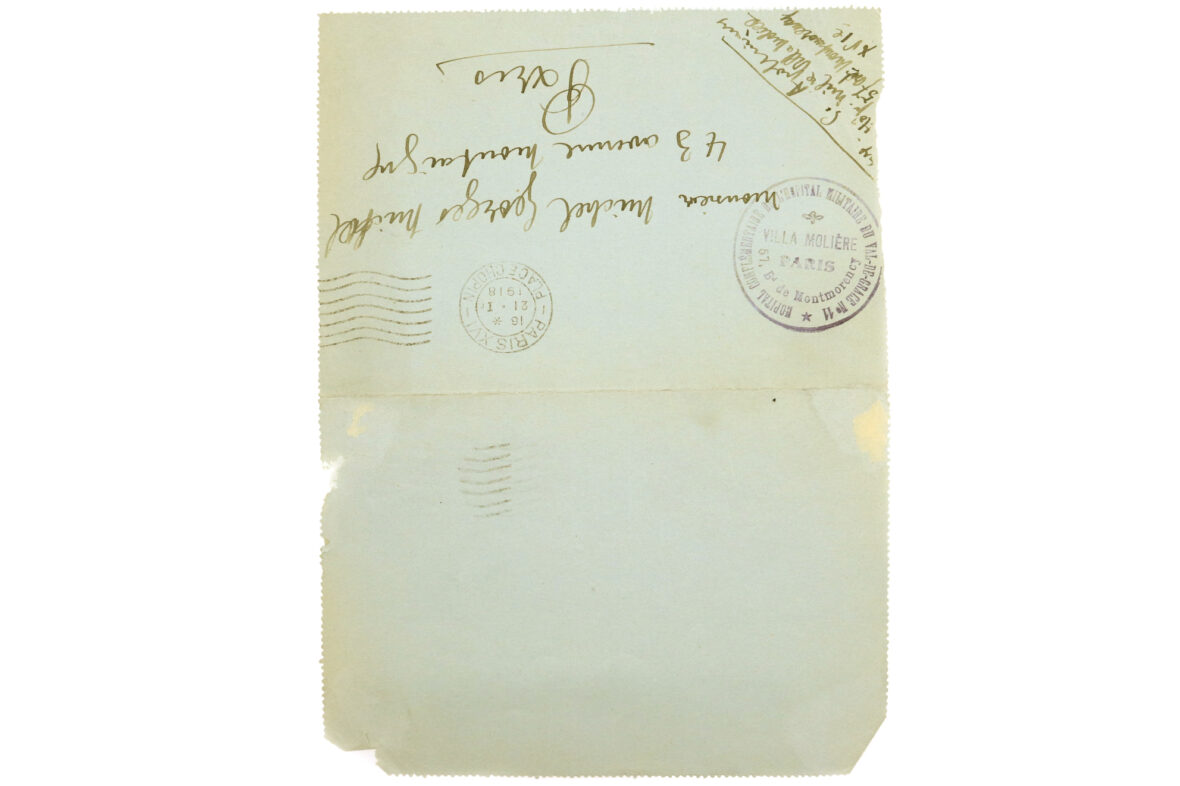 monsieur Michel Georges Michel
43 avenue Montaigne
Paris
G. Apollinaire
57 Bd Montmorency
XVIe
HOPITAL COMPLÉMENTAIRE DE L'HOPITAL MILITAIRE DU VAL-DE-GRACE Nº 11
VILLA MOLIÈRE
PARIS
57, Bd de Montmorency
PARIS XVI
16 *
21 - I
1918
PLACE CHOPIN